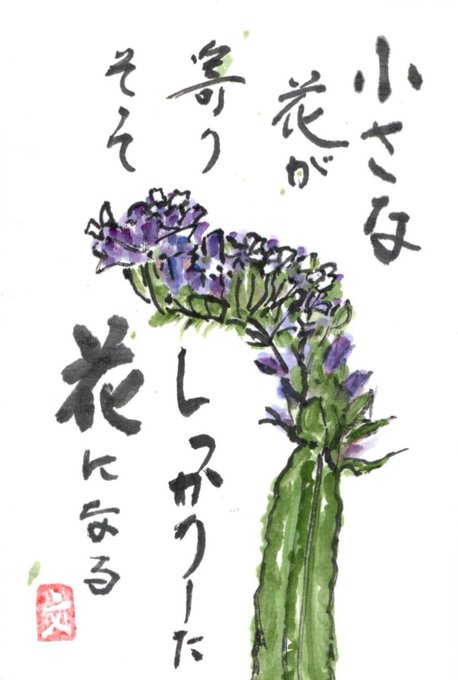 小さな
花が
寄り
そそ
しっかりした
花になる
文